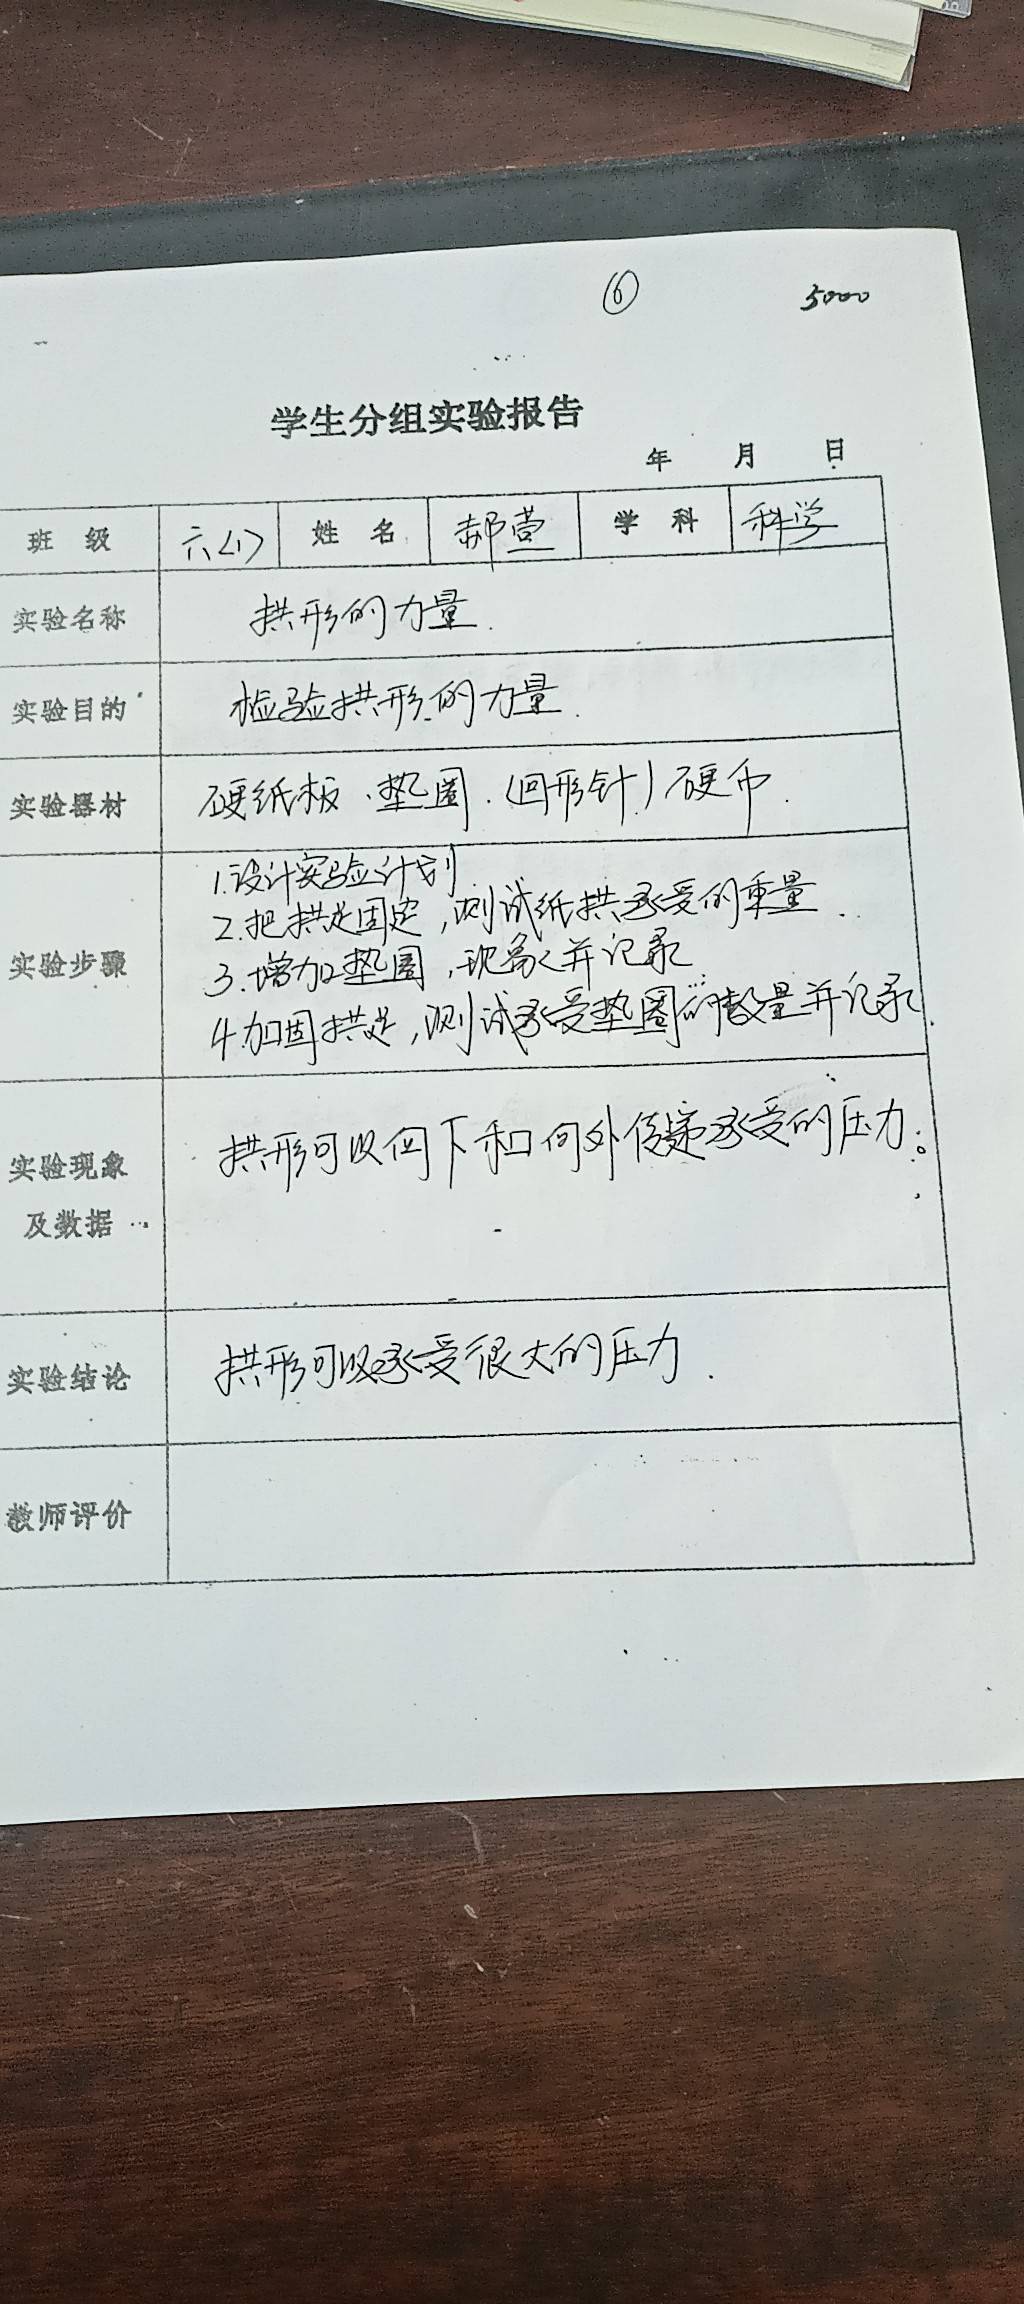 ⑥ 5000
学生分组实验报告
年 月 日
班 级 六<1> 姓 名 郝萱 学 科 科学
实验名称 拱形的力量.
实验目的 检验拱形的力量.
实验器材 硬纸板、垫圈.(回形针)硬币.
实验步骤
1.设计实验计划
2.把拱足固定,测试纸拱承受的重量.
3.增加垫圈,现象并记录
4.加固拱足,测试承受垫圈的数量并记录.
实验现象
及数据
拱形可以向下和向外传递承受的压力。
实验结论 拱形可以承受很大的压力.
教师评价